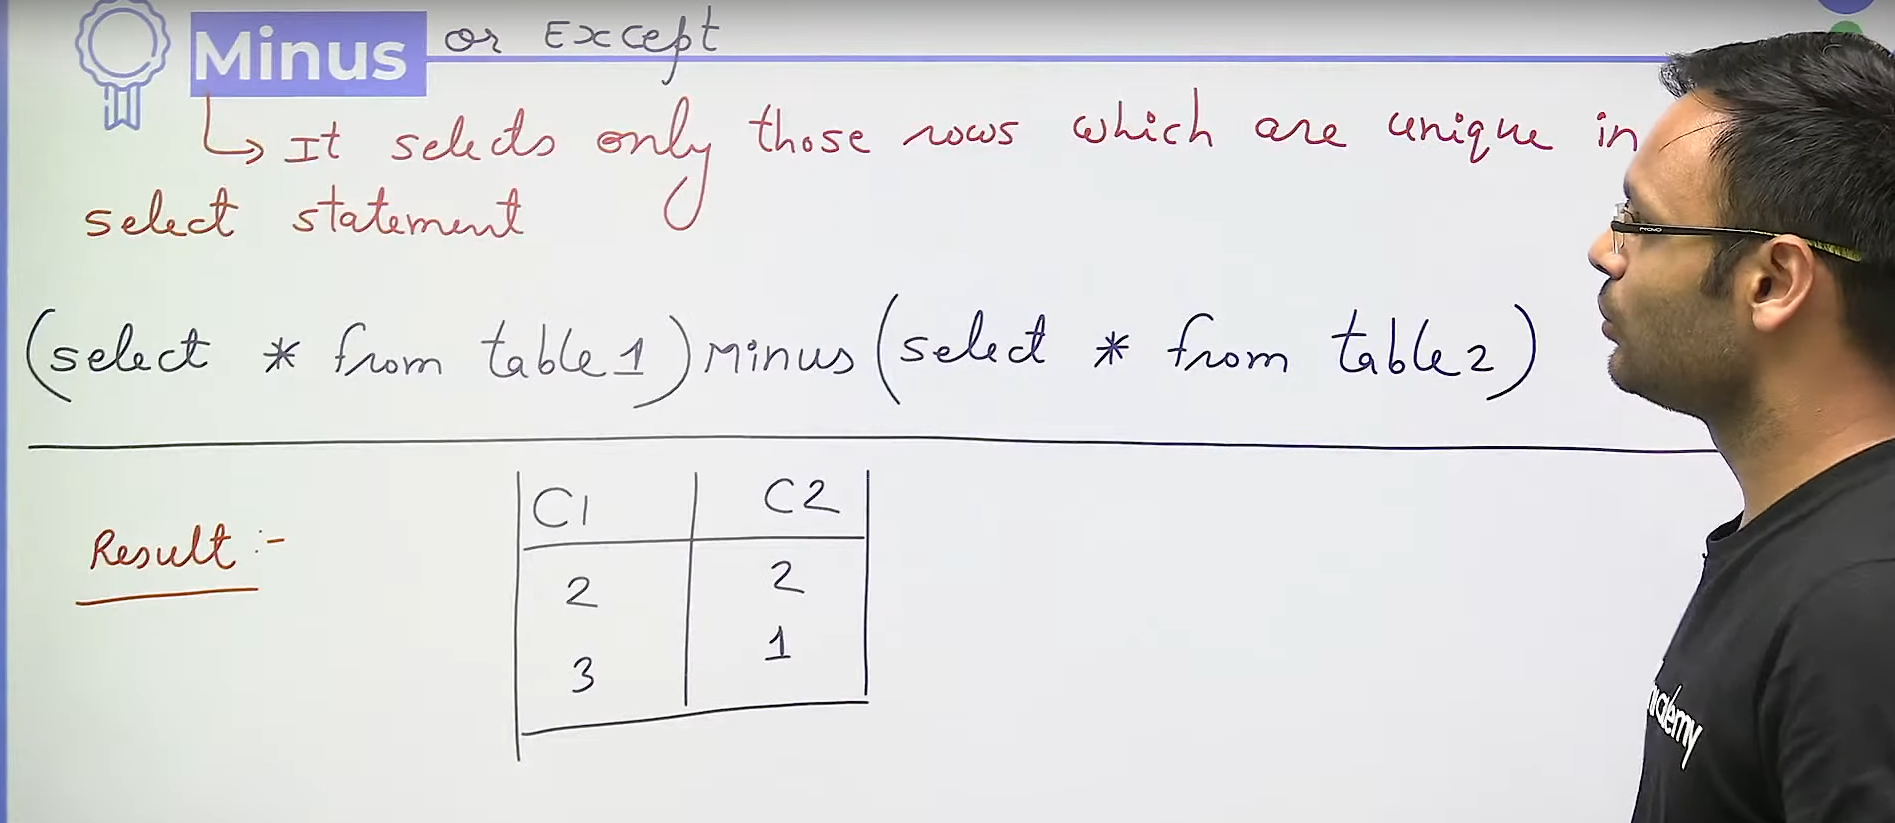 Minus or Except
↳ It selects only those rows which are unique in
select statement
(select * from table 1) Minus (select * from table 2)
Result :-
C1 C2
2 2
3 1